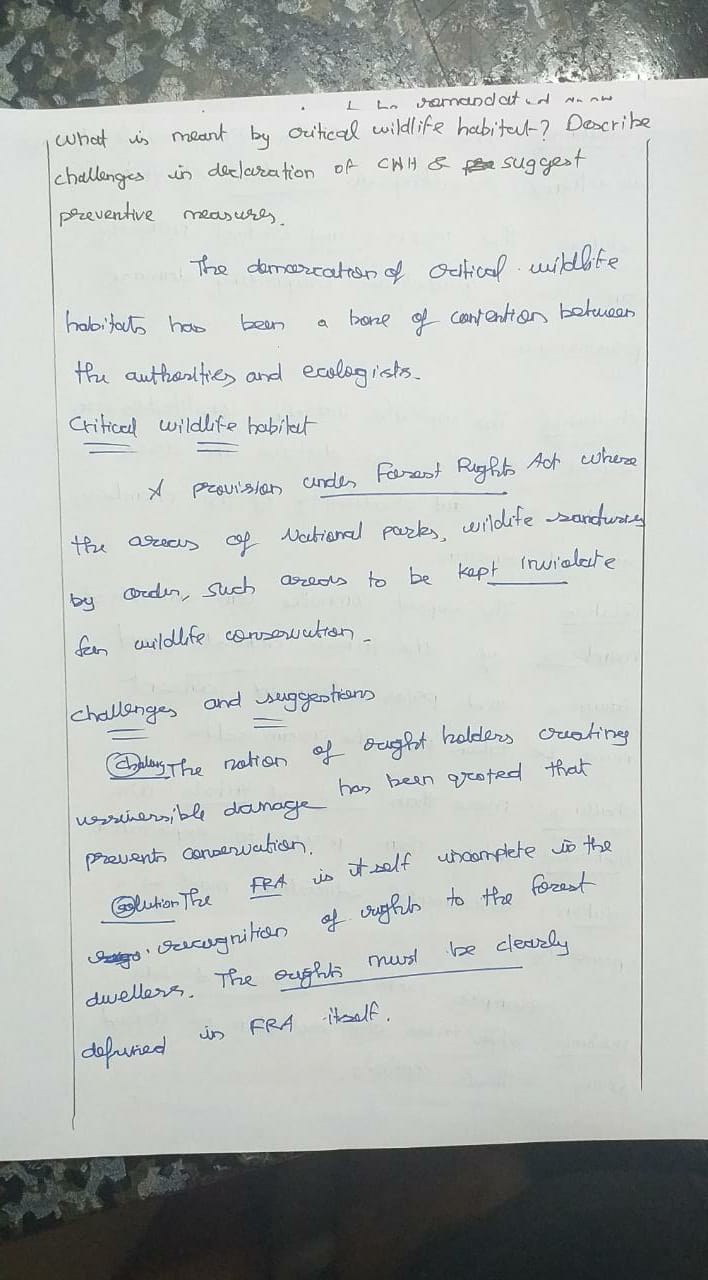 remandated
What is meant by critical wildlife habitat? Describe
challenges in declaration of CWH & suggest
preventive measures.
The demarcation of critical wildlife
habitats has been a bone of contention between
the authorities and ecologists.
Critical wildlife habitat
A provision under Forest Rights Act where
the areas of National parks, wildlife sanctuaries
by order, such areas to be kept inviolate
for wildlife conservation.
Challenges and suggestions
The notion of right holders creating
irreversible damage has been quoted that
prevents conservation.
Solution The FRA is itself incomplete in the
recognition of rights to the forest
dwellers. The rights must be clearly
defined in FRA itself.